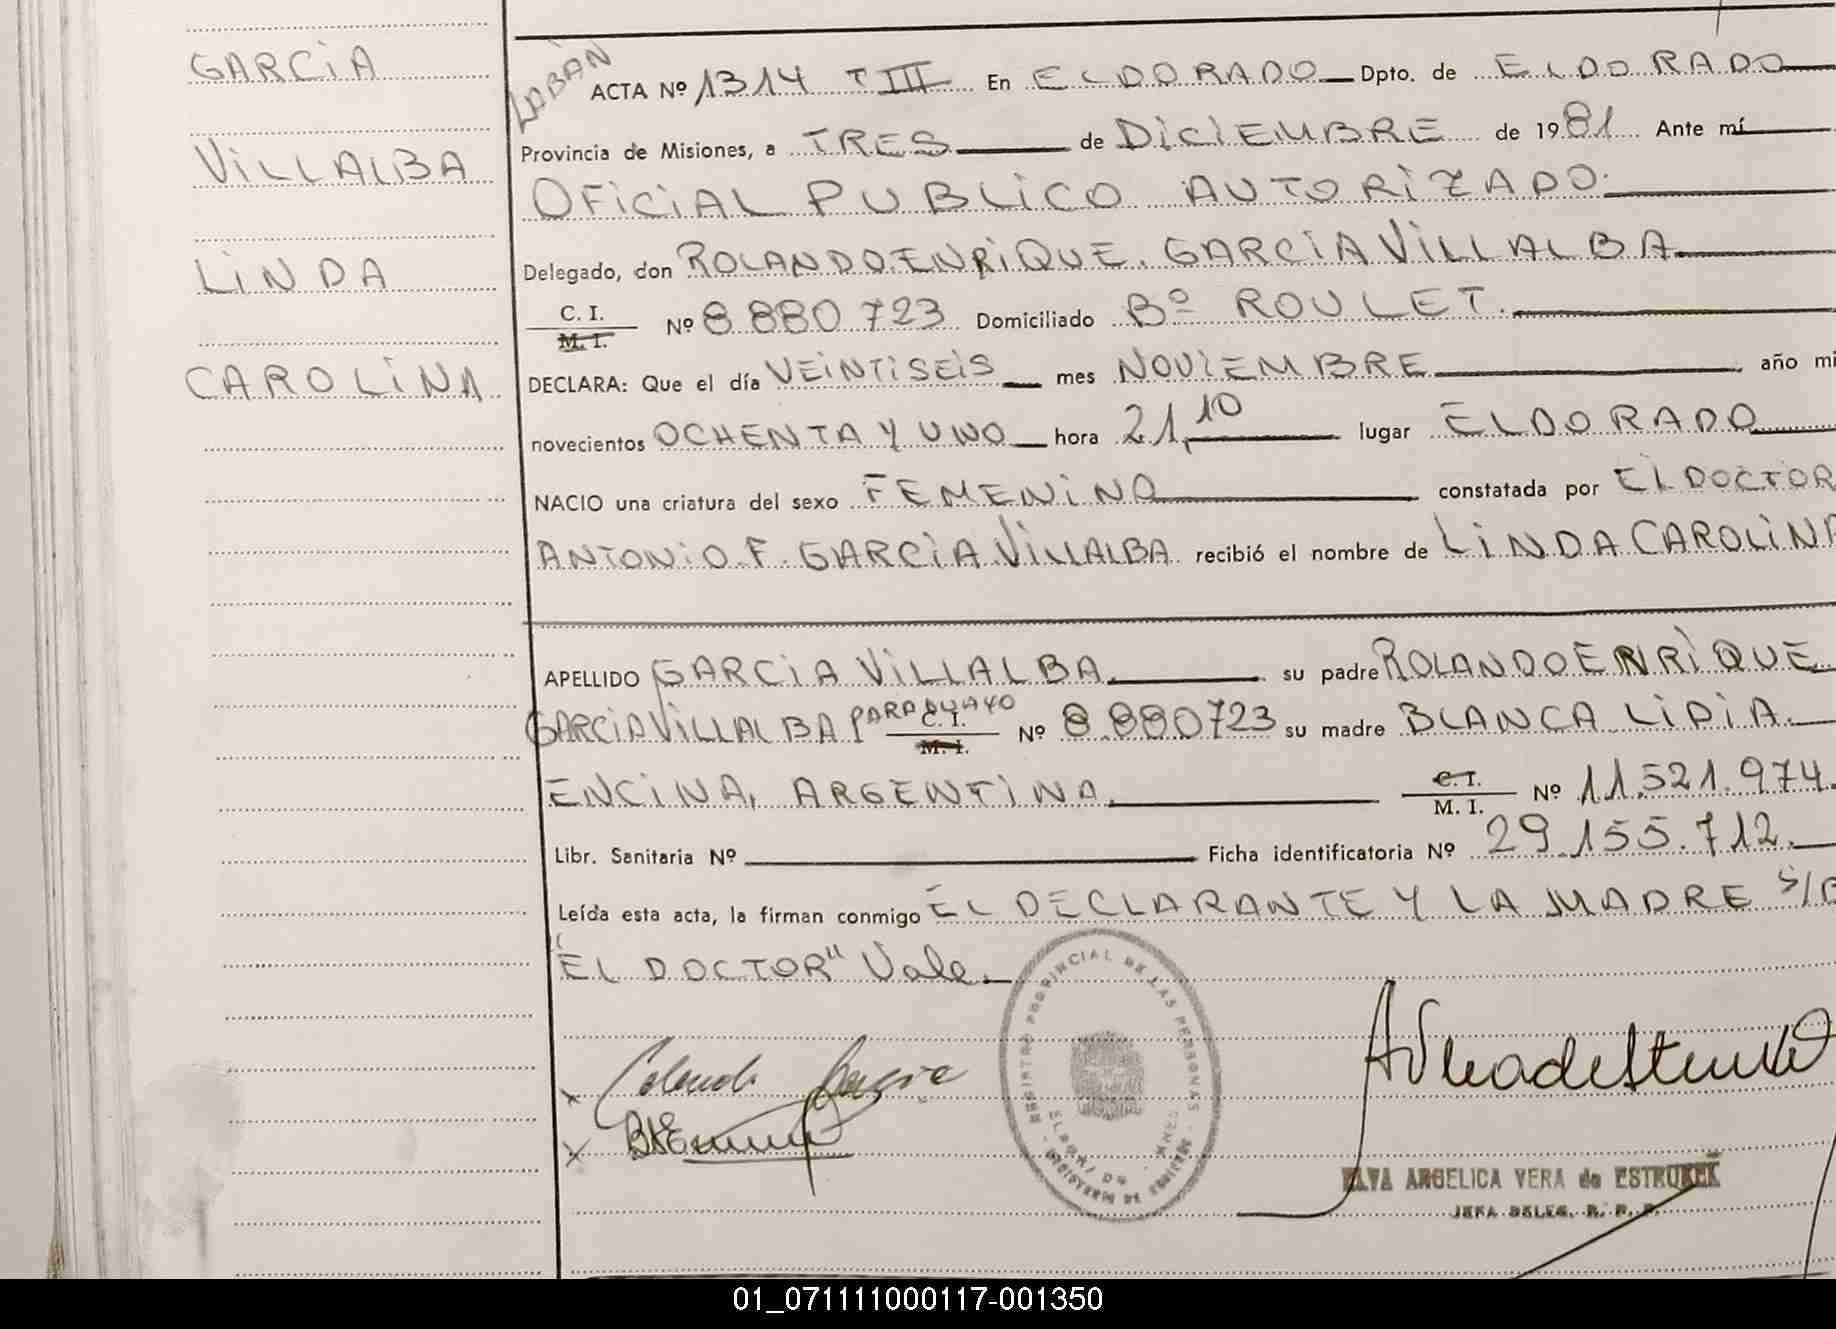 GARCiA
ViLLALBA
LiNDA
CAROLiNA
ACTA Nº 1314 T III En ELDORADO Dpto. de ELDORADO
Provincia de Misiones, a TRES de DiCiEMBRE de 1981 Ante mí
OFiCiAL PUBLiCO AUTORiZADO.
Delegado, don ROLANDO ENRiQUE. GARCiA ViLLALBA
C. I.
M. I.
Nº 8.880.723 Domiciliado Bº ROULET.
DECLARA: Que el día VEiNTiSEiS mes NOViEMBRE año mi
novecientos OCHENTA Y UNO hora 21,10 lugar ELDORADO
NACIO una criatura del sexo FEMENiNO constatada por EL DOCTOR
ANTONiO.F. GARCiA.ViLLALBA recibió el nombre de LiNDA CAROLiNA
APELLIDO GARCiA ViLLALBA su padre ROLANDO ENRiQUE
GARCiA ViLLALBA PARAGUAYO C. I. Nº 8.880723 su madre BLANCA LiDiA.
M. I.
ENCiNA, ARGENTiNA C. I. Nº 11.521.974.
M. I.
Libr. Sanitaria Nº Ficha identificatoria Nº 29.155.712.
Leída esta acta, la firman conmigo EL DECLARANTE Y LA MADRE S/B
"EL DOCTOR" Vale.
REGISTRO PROVINCIAL DE LAS PERSONAS
ELDORADO
ELVA ANGELICA VERA de ESTRUKEK
JEFA DELEG. R. P. P.
01_071111000117-001350